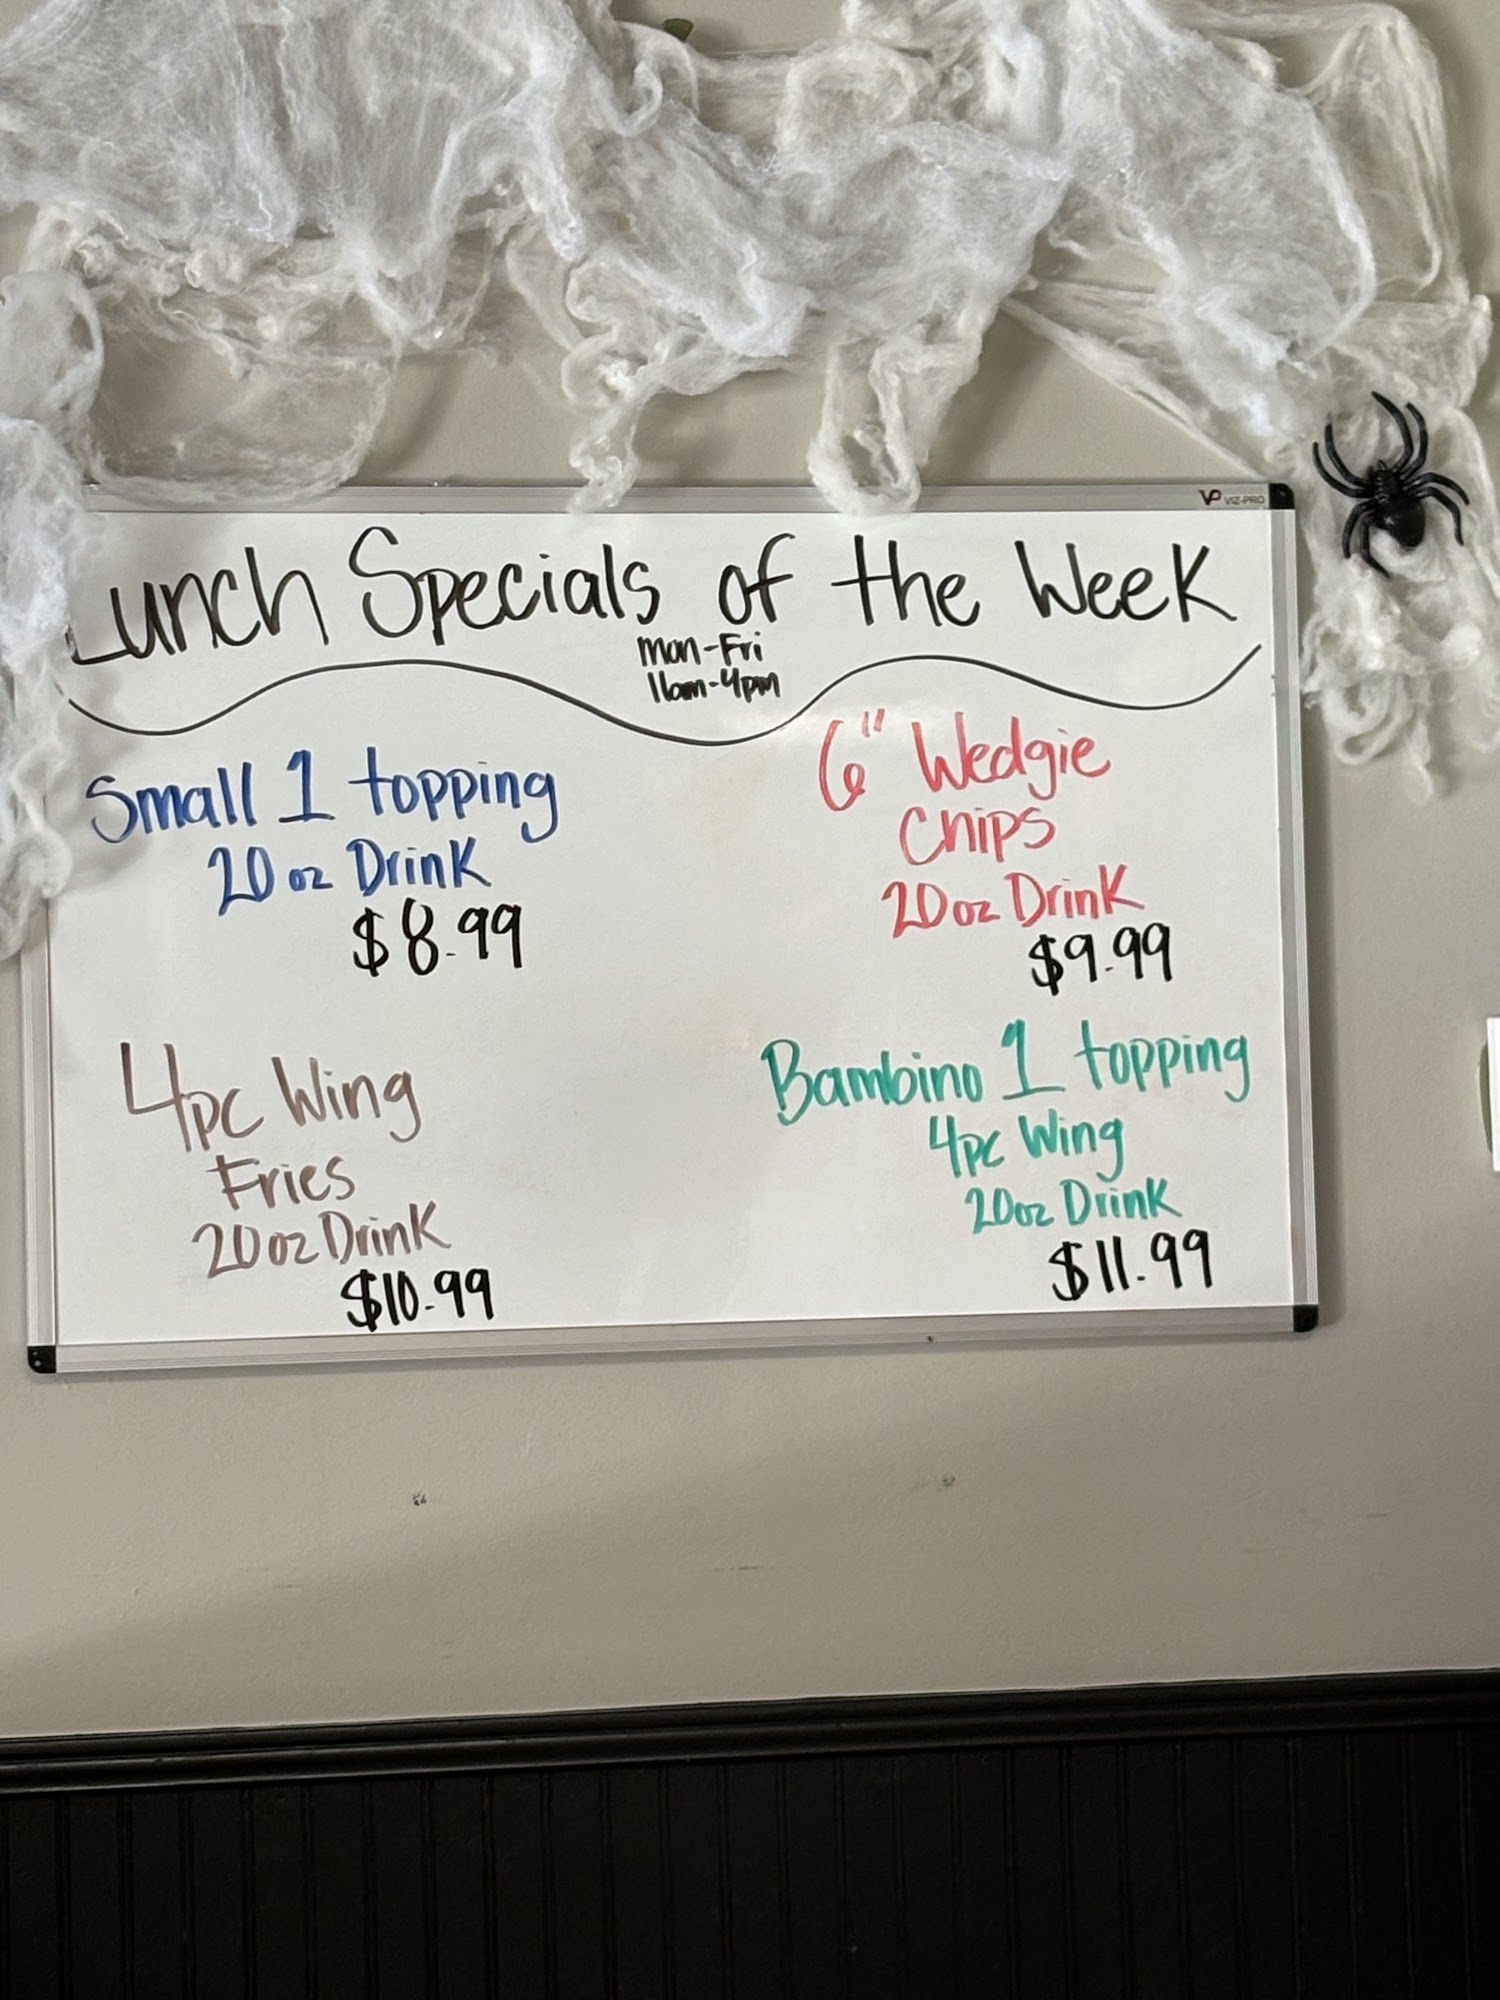 VP VIZ-PRO
Lunch Specials of the Week
Mon-Fri
11am-4pm
Small 1 topping
20oz Drink
$8.99
6" Wedgie
Chips
20oz Drink
$9.99
4pc Wing
Fries
20oz Drink
$10.99
Bambino 1 topping
4pc Wing
20oz Drink
$11.99